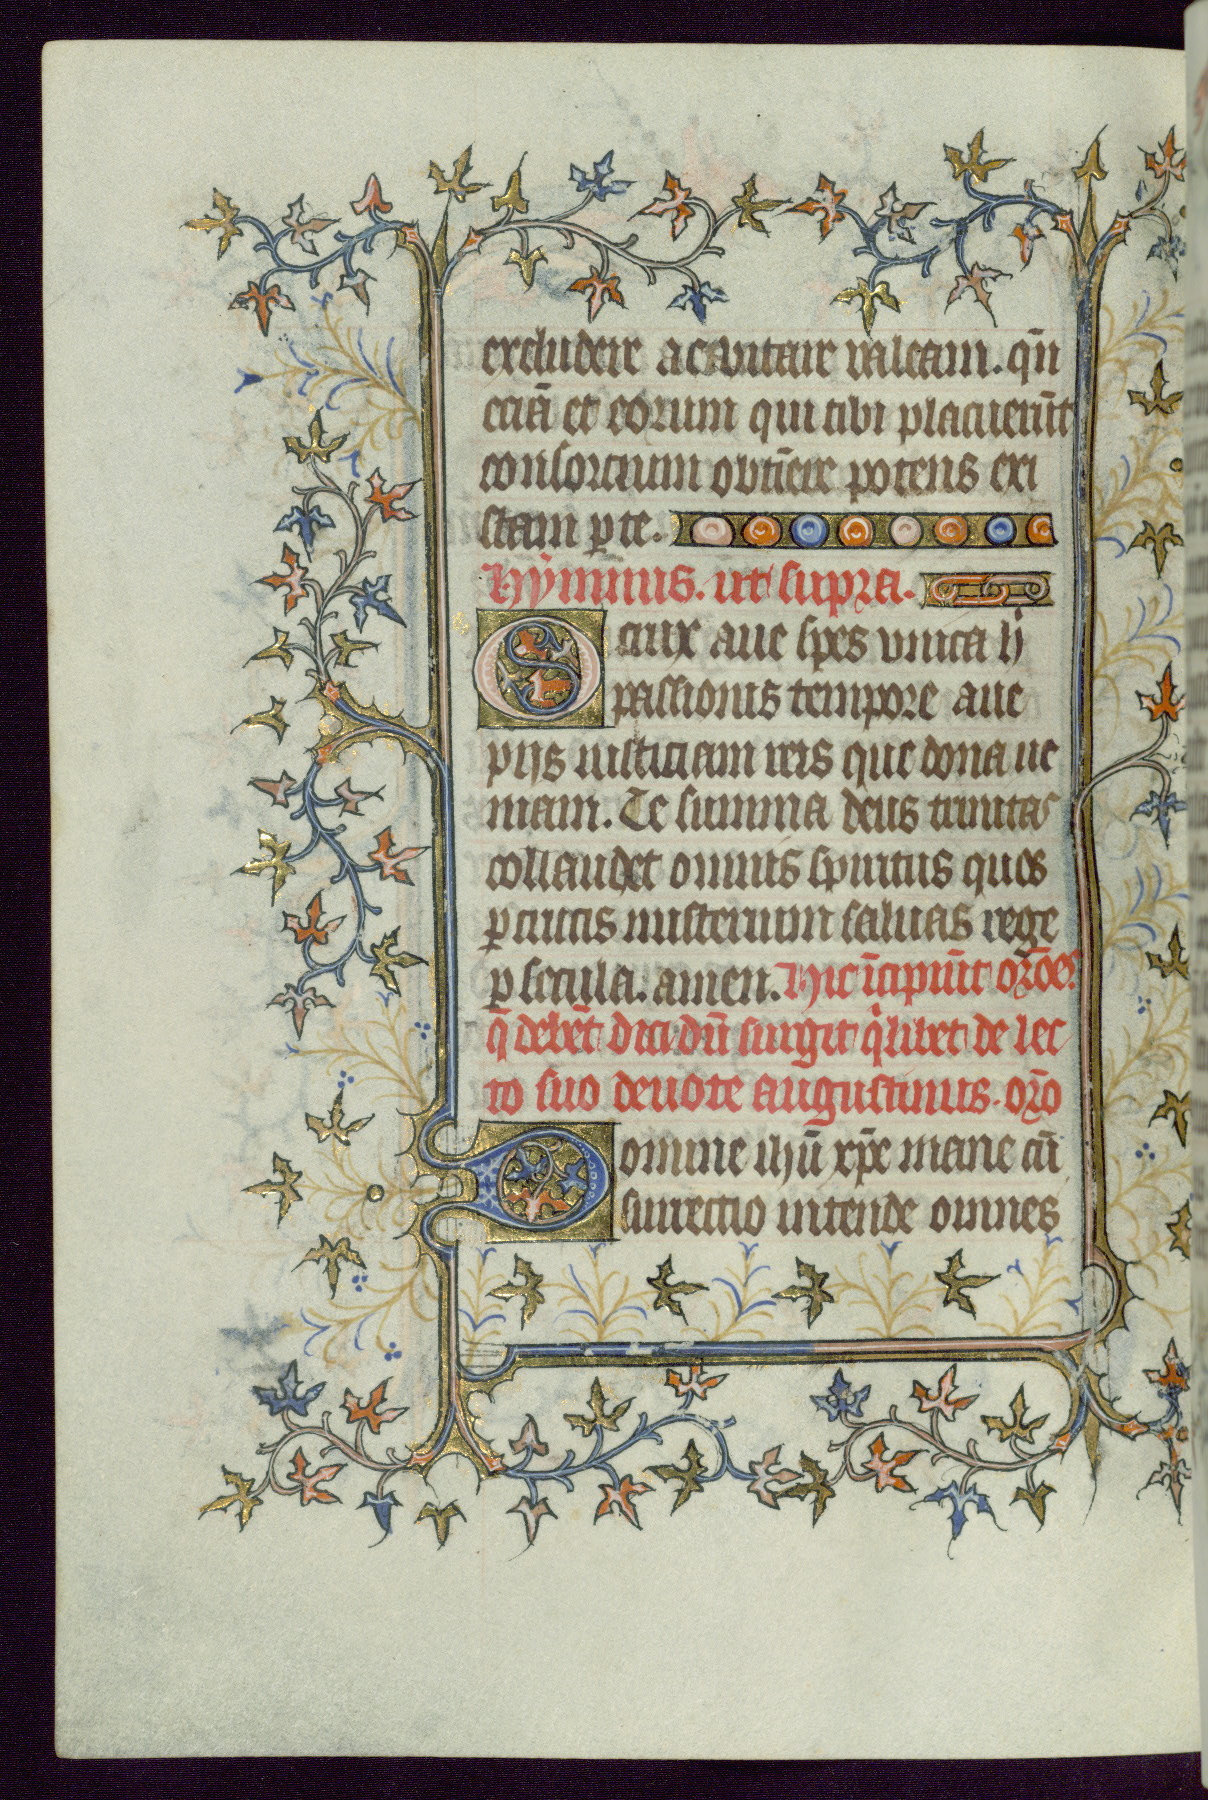 excludere a caritate valeam. qm̄
eciā et eorum qui tibi placuerūt
consorcium obtīere potens exi
stam p te.
Hymnus. ut supra.
O crux aue spes vnica h̄
passionis tempore aue
pijs iusticiam reis que dona ue
niam. Te summa deus trinitas
collaudet omnis spiritus quos
p crucis misterium saluas rege
p secula. amen. Hic īcipiūt orōes
q̄ debēt dici dū surgit q̄libet de lec
to suo deuote augustinus. orō
Domine ihū xp̄e mane cū
surrectio intende omnes